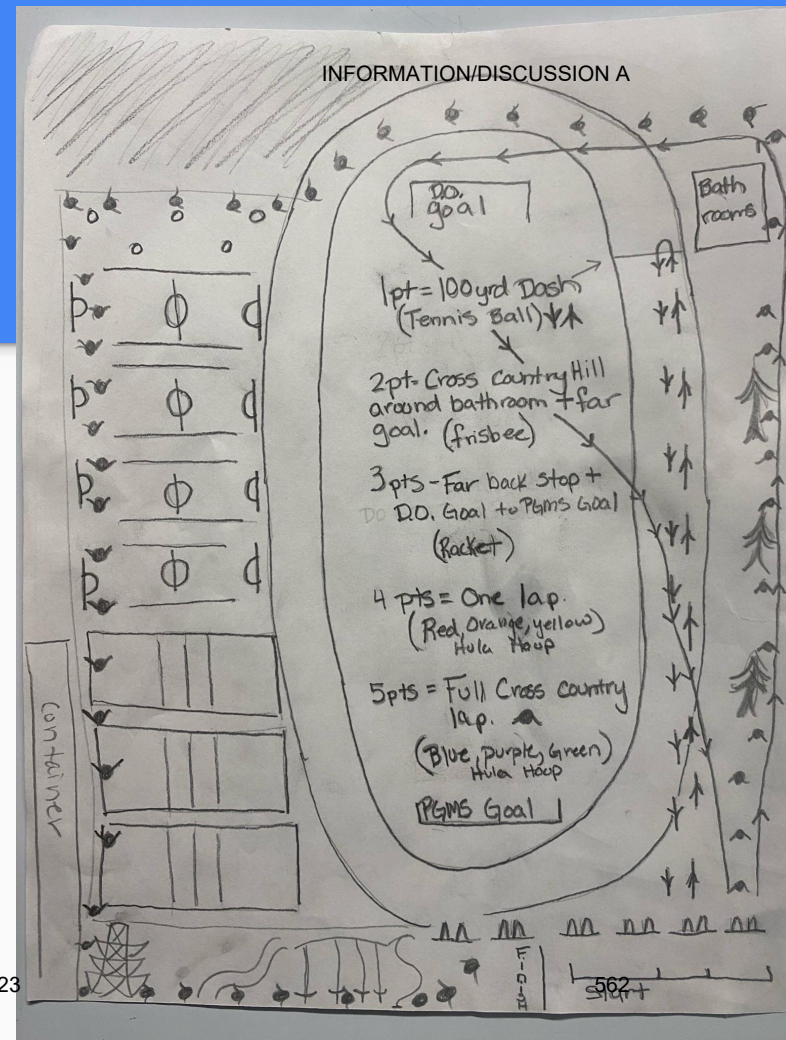 INFORMATION/DISCUSSION A
D.O.
goal
Bath
rooms
1pt = 100yrd Dash
(Tennis Ball)
2pt- Cross Country Hill
around bathroom + far
goal. (frisbee)
3pts - Far back stop +
DO D.O. Goal to PGMS Goal
(Racket)
4 pts = One lap.
(Red, Orange, yellow)
Hula Hoop
5pts = Full Cross Country
lap.
(Blue, purple, Green)
Hula Hoop
PGMS Goal
Container
FINISH
Start
562
23